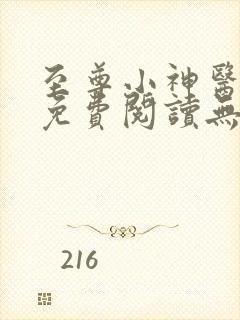 至尊小神醫
免費閱讀無
216